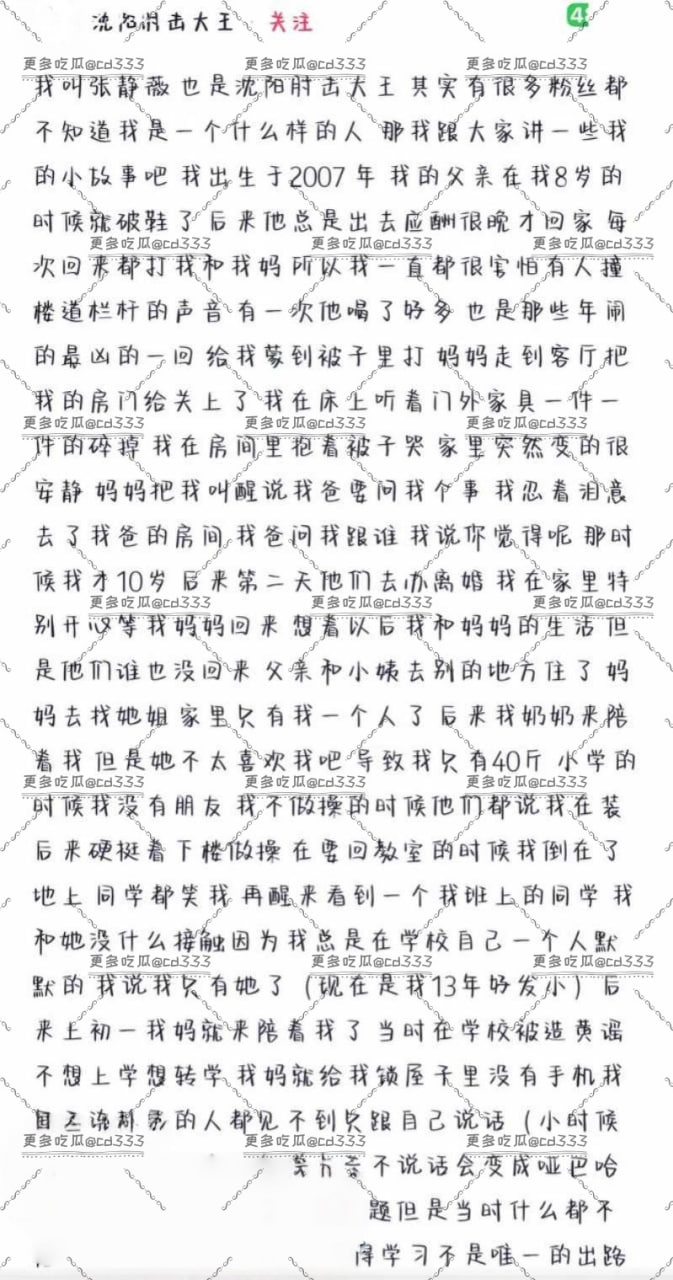 沈阳肘击大王 关注
4
更多吃瓜@cd333 更多吃瓜@cd333 更多吃瓜@cd333
我叫张静薇 也是沈阳肘击大王 其实有很多粉丝都
不知道我是一个什么样的人 那我跟大家讲一些我
的小故事吧 我出生于2007年 我的父亲在我8岁的
时候就破鞋了 后来他总是出去应酬很晚才回家 每
更多吃瓜@cd333 更多吃瓜@cd333 更多吃瓜@cd333
次回来都打我和我妈 所以我一直都很害怕有人撞
楼道栏杆的声音 有一次他喝了好多 也是那些年闹
的最凶的一回 给我蒙到被子里打 妈妈走到客厅把
我的房门给关上了 我在床上听着门外家具一件一
更多吃瓜@cd333 更多吃瓜@cd333 更多吃瓜@cd333
件的碎掉 我在房间里抱着被子哭 家里突然变的很
安静 妈妈把我叫醒说我爸要问我个事 我忍着泪意
去了我爸的房间 我爸问我跟谁 我说你觉得呢 那时
候我才10岁 后来第二天他们去办离婚 我在家里特
更多吃瓜@cd333 更多吃瓜@cd333 更多吃瓜@cd333
别开心等我妈妈回来 想着以后我和妈妈的生活 但
是他们谁也没回来 父亲和小姨去别的地方住了 妈
妈去找她姐 家里只有我一个人了 后来我奶奶来陪
着我 但是她不太喜欢我吧 导致我只有40斤 小学的
更多吃瓜@cd333 更多吃瓜@cd333 更多吃瓜@cd333
时候我没有朋友 我不做操的时候他们都说我在装
后来硬挺着下楼做操 在要回教室的时候我倒在了
地上 同学都笑我 再醒来看到一个我班上的同学 我
和她没什么接触因为我总是在学校自己一个人默
更多吃瓜@cd333 更多吃瓜@cd333 更多吃瓜@cd333
默的 我说我只有她了（现在是我13年好发小）后
来上初一我妈就来陪着我了 当时在学校被造黄谣
不想上学想转学 我妈就给我锁屋子里没有手机我
的人都见不到只跟自己说话（小时候
更多吃瓜@cd333 更多吃瓜@cd333 更多吃瓜@cd333
不说话会变成哑巴哈
题但是当时什么都不
学习不是唯一的出路